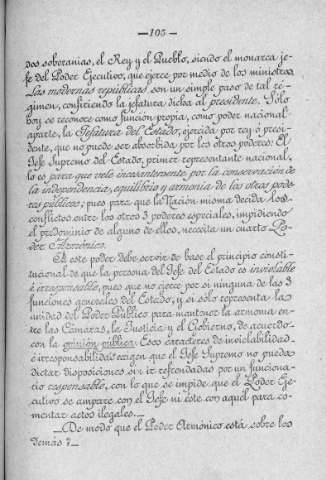 —103—
dos soberanías, el Rey y el Pueblo, siendo el monarca je-
fe del Poder Ejecutivo, que ejerce por medio de los ministros.
Las modernas repúblicas son un simple paso de tal ré-
gimen, confiriendo la jefatura dicha al presidente. Sólo
hoy se reconoce como función propia, como poder nacional
aparte, la Jefatura del Estado, ejercida por rey ó presi-
dente, que no puede ser absorbida por los otros poderes: El
Jefe Supremo del Estado, primer representante nacional,
lo es para que vele incesantemente por la conservación de
la independencia, equilibrio y armonía de los otros pode-
res públicos, pues para que la Nación misma decida los
conflictos entre los otros 3 poderes especiales, impidiendo
el predominio de alguno de ellos, necesita un cuarto Po-
der Armónico.
A este poder debe servir de base el principio consti-
tucional de que la persona del Jefe del Estado es inviolable
é irresponsable, pues que no ejerce por sí ninguna de las 3
funciones generales del Estado, y sí sólo representa la
unidad del Poder Público para mantener la armonía en-
tre las Cámaras, la Justicia y el Gobierno, de acuerdo
con la opinión pública. Esos caracteres de inviolabilidad
é irresponsabilidad exigen que el Jefe Supremo no pueda
dictar disposiciones sin ir refrendadas por un funciona-
rio responsable, con lo que se impide que el Poder Eje-
cutivo se ampare con el Jefe ni éste con aquel para co-
mentar actos ilegales.—
—De modo que el Poder Armónico está sobre los
demás?—